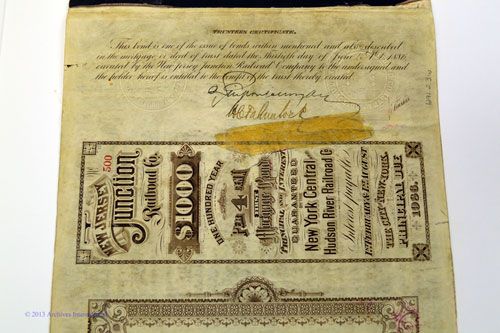 TRUSTEES CERTIFICATE.
This bond is one of the issue of bonds within mentioned and also described
in the mortgage or deed of trust dated the Thirtieth day of June A.D. 1886
executed by the New Jersey Junction Railroad Company to the undersigned and
the holder hereof is entitled to the benefit of the trust thereby created.
Trustees
NEW JERSEY
500
Junction
Railroad Co.
$1000
ONE HUNDRED YEAR
PER 4 CENT
FIRST
Mortgage Bond
PRINCIPAL AND INTEREST
GUARANTEED
New York Central
Hudson River Railroad Co
Interest payable
FEBRUARY & AUGUST
IN
THE CITY OF NEW-YORK.
PRINCIPAL DUE
1986.
© 2013 Archives International